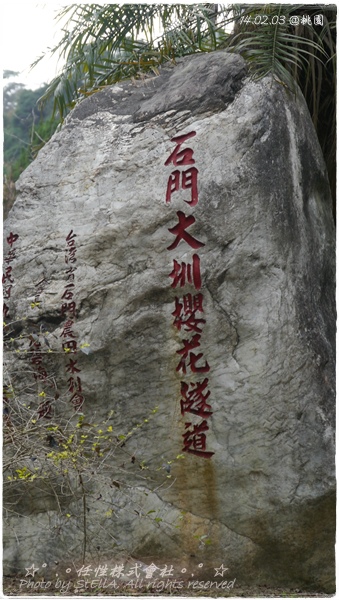 14.02.03 @桃園
石門大圳櫻花隧道
台灣省石門農田水利會
中華民
☆°．○任性株式會社○．°☆
Photo by StEllA. All rights reserved